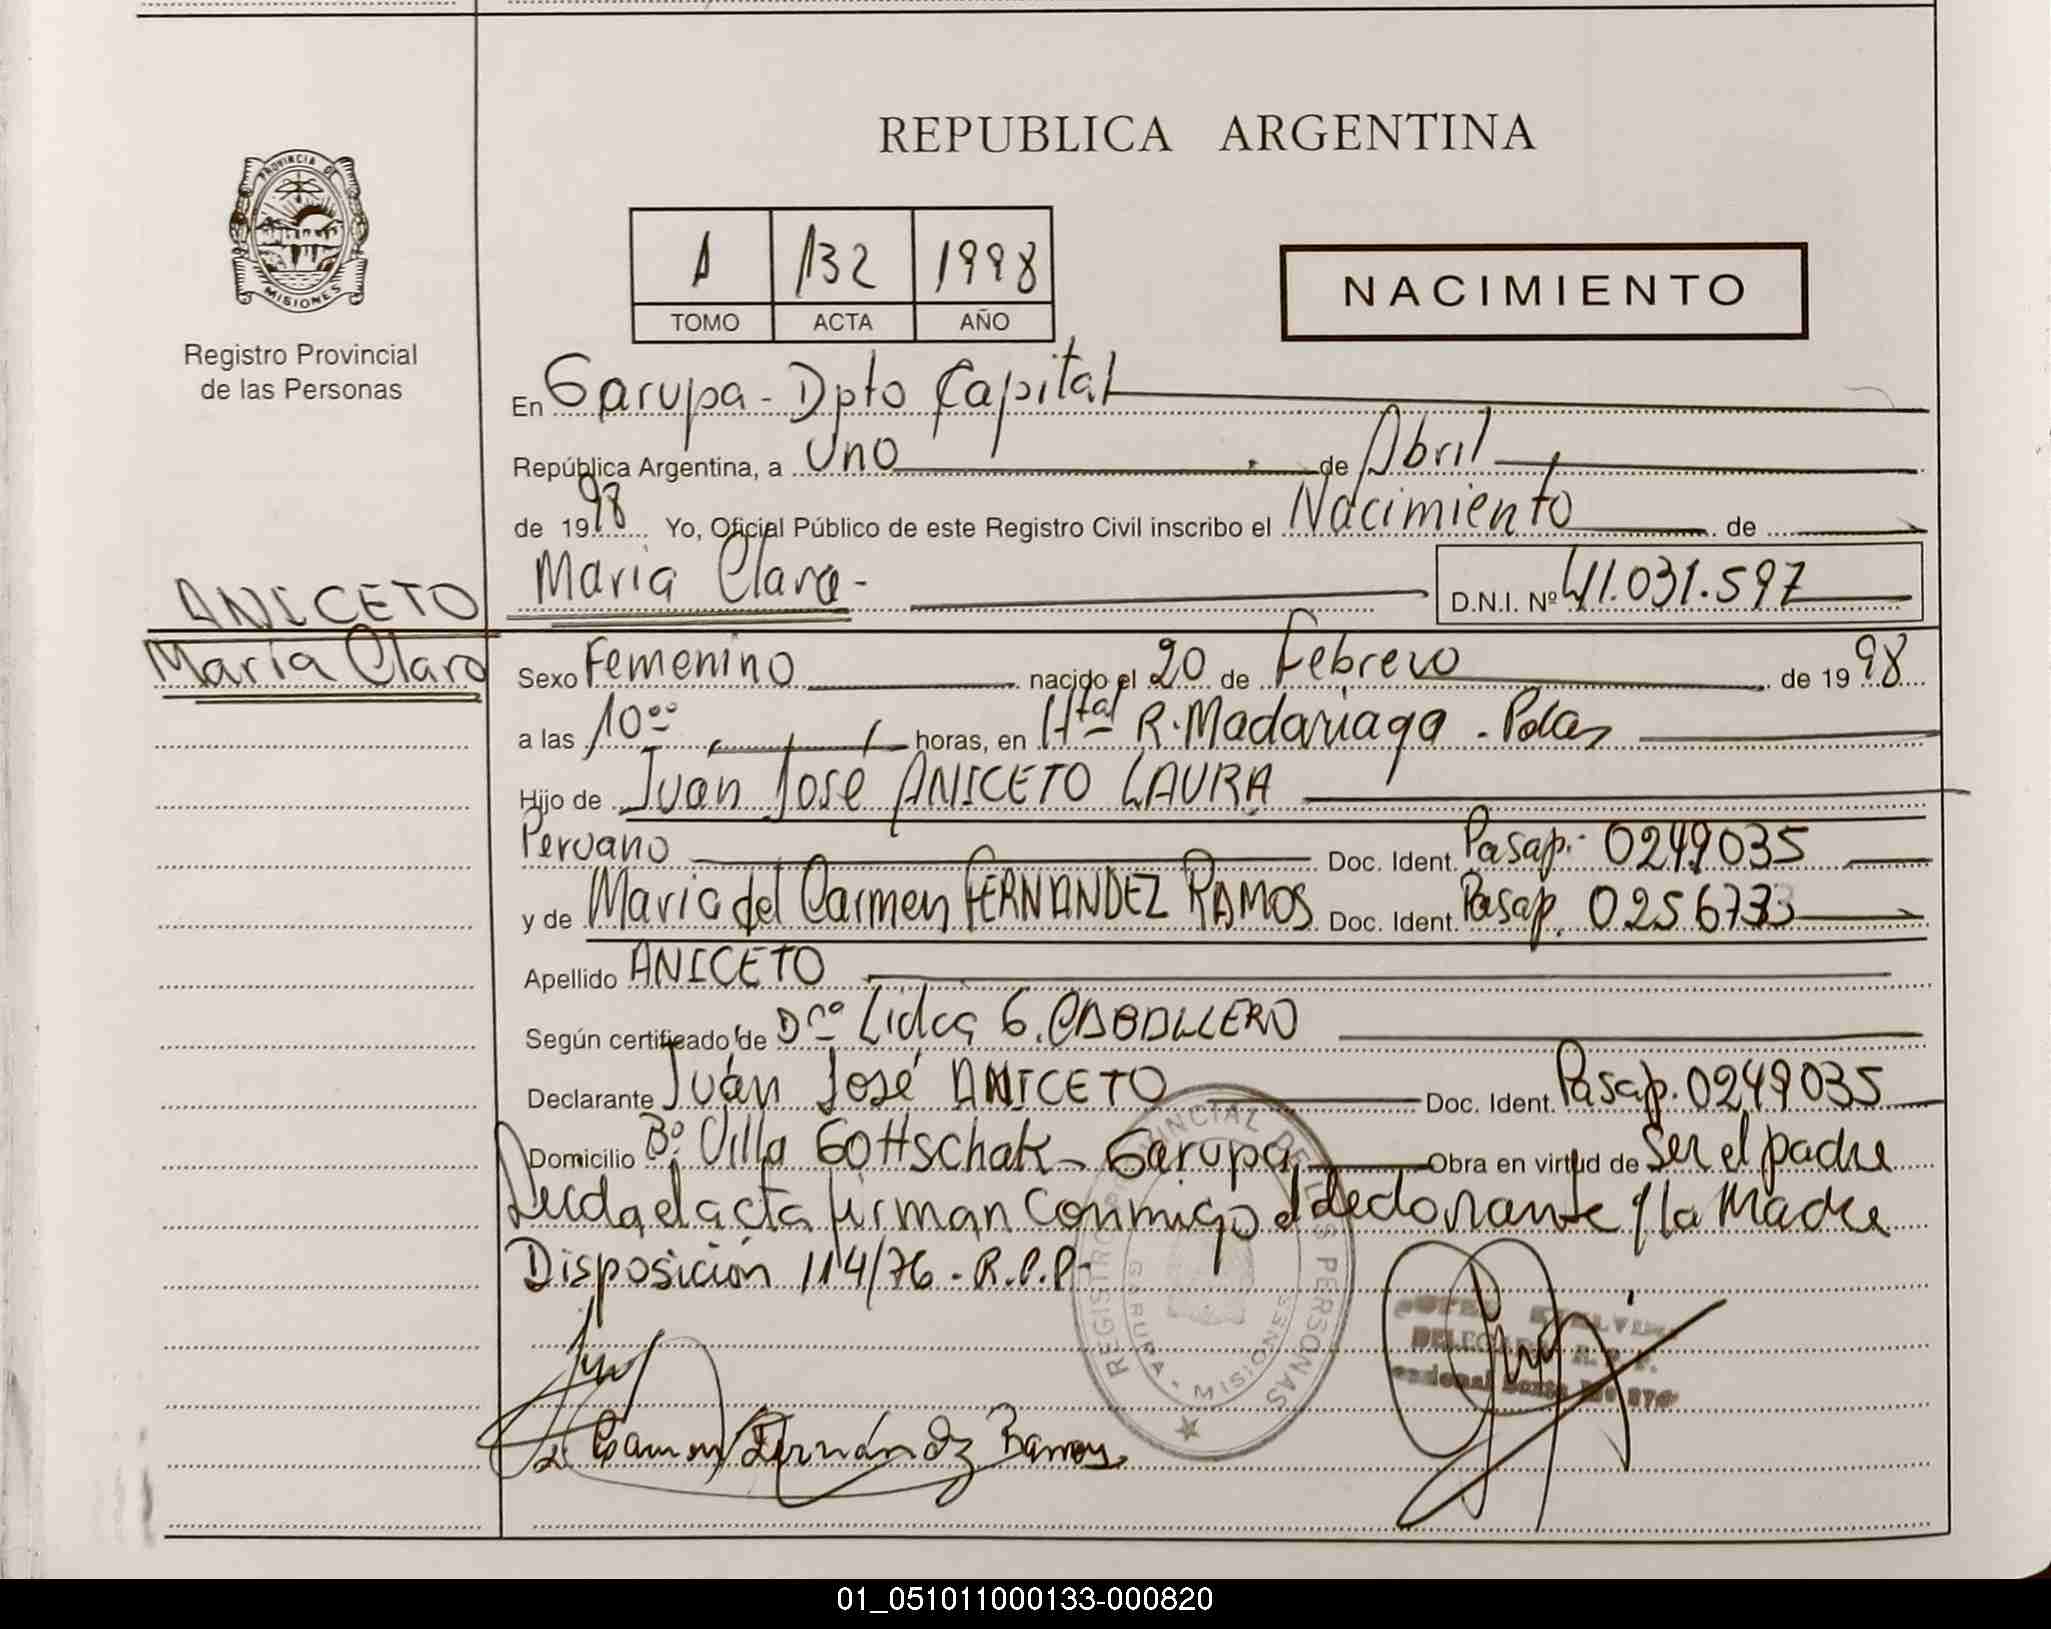 REPUBLICA ARGENTINA
PROVINCIA DE
MISIONES
Registro Provincial
de las Personas
1 132 1998
TOMO ACTA AÑO
NACIMIENTO
En Garupa - Dpto Capital
República Argentina, a Uno de Abril
de 1998 Yo, Oficial Público de este Registro Civil inscribo el Nacimiento de
ANICETO
María Clara
María Clara - D.N.I. Nº 41.031.597
Sexo Femenino nacido el 20 de Febrero de 1998
a las 10 ºº horas, en Htal R. Madariaga - Pdas
Hijo de Juan José ANICETO LAURA
Peruano Doc. Ident. Pasap: 0249035
y de María del Carmen FERNANDEZ RAMOS Doc. Ident. Pasap. 0256733
Apellido ANICETO
Según certificado de Drª Lidia G. CABALLERO
Declarante Juán José ANICETO Doc. Ident. Pasap. 0249035
Domicilio Bº Villa Gottschak - Garupa, Obra en virtud de Ser el padre
Leida el acta firman conmigo el declarante y la Madre
Disposición 114/76 - R.P.P-
REGISTRO PROVINCIAL DE LAS PERSONAS
GARUPA - MISIONES
DELEGADA R. P. P.
Carmen Fernández Ramos
01_051011000133-000820